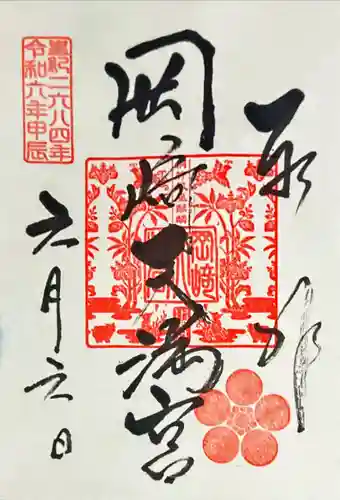 奉拝
岡崎天満宮
皇紀二六八四年
令和六年甲辰
六月六日
岡﨑